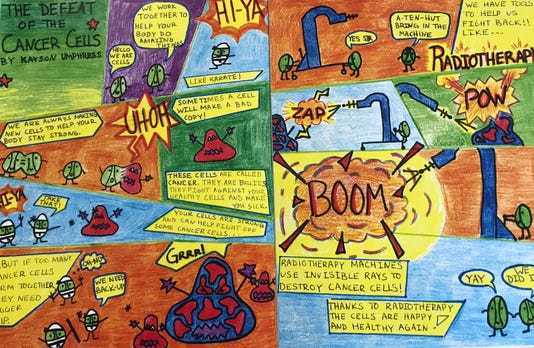 THE DEFEAT
OF THE
CANCER CELLS
BY KAYSON UMPHRESS
HELLO
WE ARE
CELLS
WE WORK
TOGETHER TO
HELP YOUR
BODY DO
AMAZING
THINGS
HI-YA
LIKE KARATE!
WE ARE ALWAYS MAKING
NEW CELLS TO HELP YOUR
BODY STAY STRONG.
UHOH
SOMETIMES A CELL
WILL MAKE A BAD
COPY!
THESE CELLS ARE CALLED
CANCER. THEY ARE BULLIES
THEY FIGHT AGAINST YOUR
HEALTHY CELLS AND MAKE
YOU SICK.
HI-
YOUR CELLS ARE STRONG
AND CAN HELP FIGHT OFF
SOME CANCER CELLS.
BUT IF TOO MANY
CANCER CELLS
FORM TOGETHER
THEY NEED
BIGGER
OH-NO
WE NEED
BACK-UP
GRRR!
YES SIR
A-TEN-HUT
BRING IN THE
MACHINE
WE HAVE TOOLS
TO HELP US
FIGHT BACK!!
LIKE...
RADIOTHERAPY
ZAP
POW
BOOM
RADIOTHERAPY MACHINES
USE INVISIBLE RAYS TO
DESTROY CANCER CELLS!
YAY
WE
DID I
THANKS TO RADIOTHERAPY
THE CELLS ARE HAPPY
AND HEALTHY AGAIN